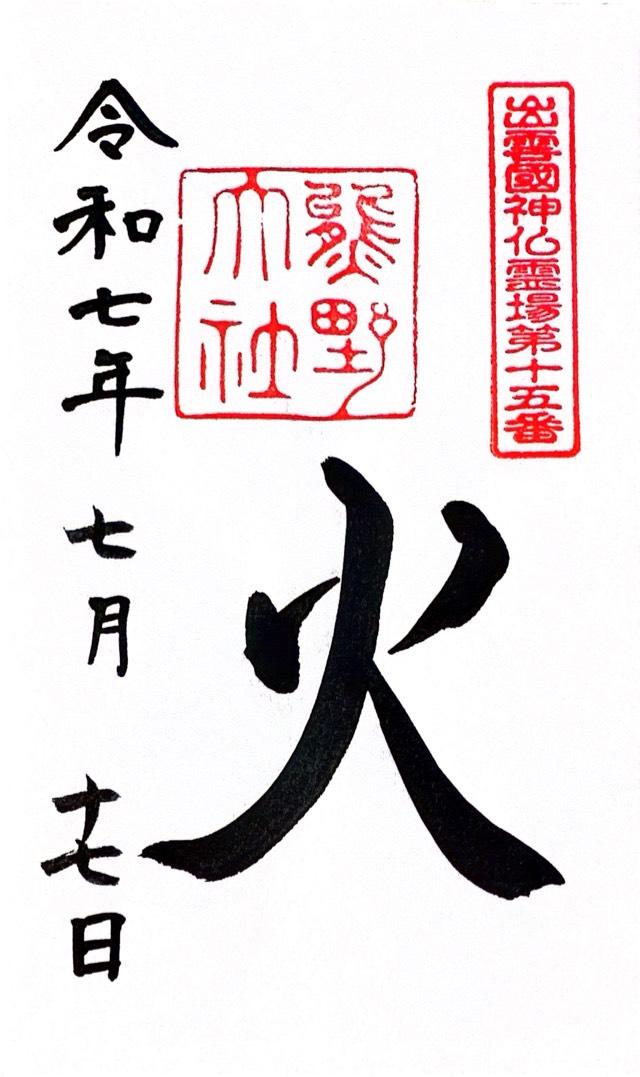 出雲國神仏霊場第十五番
熊野
大社
火
令和七年七月十七日